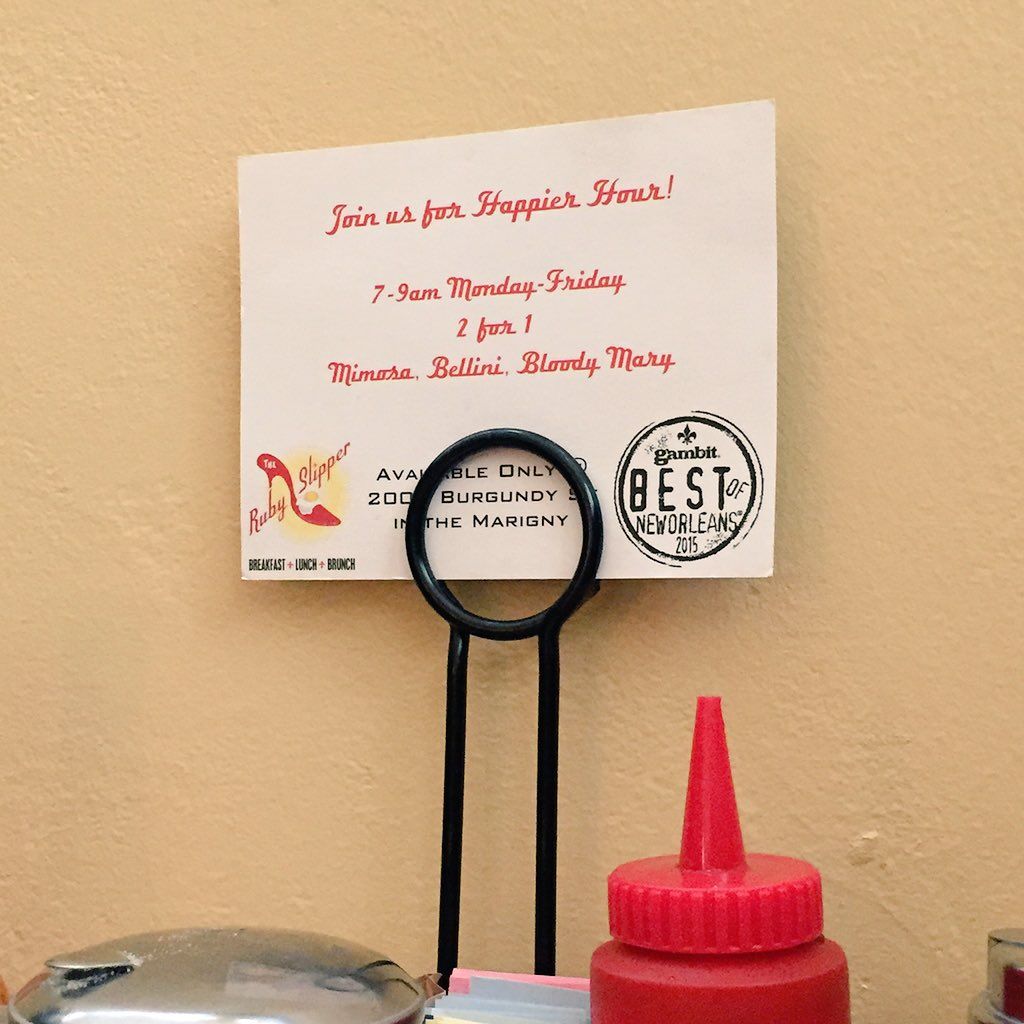 Join us for Happier Hour!
7-9am Monday-Friday
2 for 1
Mimosa, Bellini, Bloody Mary
THE
Ruby Slipper
BREAKFAST + LUNCH + BRUNCH
Available Only @
Burgundy
in the Marigny
gambit
BEST OF
NEW ORLEANS
2015